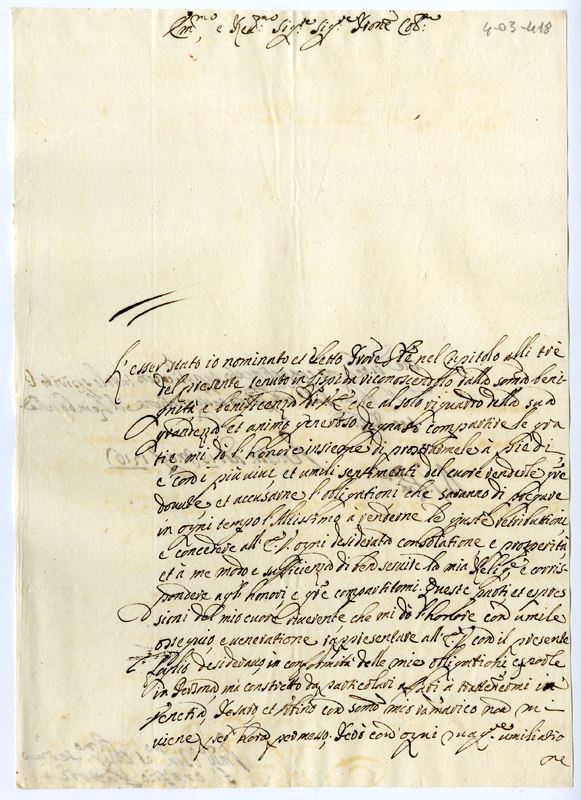 Em.mo, e Rev.mo Sig.re Sig.re Prone Col.mo
4-03-418
L'esser stato io nominato et eletto Prore Gñle nel Capitolo alli trè
del presente tenuto in riconoscendolo dalla somma beni-
gnità e beneficenza di V. Em. che al solo riguardo della sua
grandezza et animo generoso compartire le gra-
tie, mi dò l'honore insieme di prostrarmele à piedi,
e con i più vivi et umili sentimenti del cuore renderle gre
dovute et accusarne l'obligationi che saranno di pregare
in ogni tempo l'Altissimo à renderne le giuste retributioni
e concedere all'E. V. ogni desiderato consolatione e prosperità,
et à me modo e sufficienza di ben servire la mia Relig.e e corris-
pondere agl'honori, e gre compartitomi. Questi voti et espres-
sioni del mio cuore riverente che mi dò l'honore con umile
ossequio e veneratione rappresentare all'E. V. con il presente
foglio desideravo in conformità delle mie obligationi esporle
in persona mà constretto da particolari affari à trattenermi in
Venetia, Pesaro et con sommo mio ramarico non mi
viene per hora permesso. Perciò con ogni mag.re umiliatio
ne